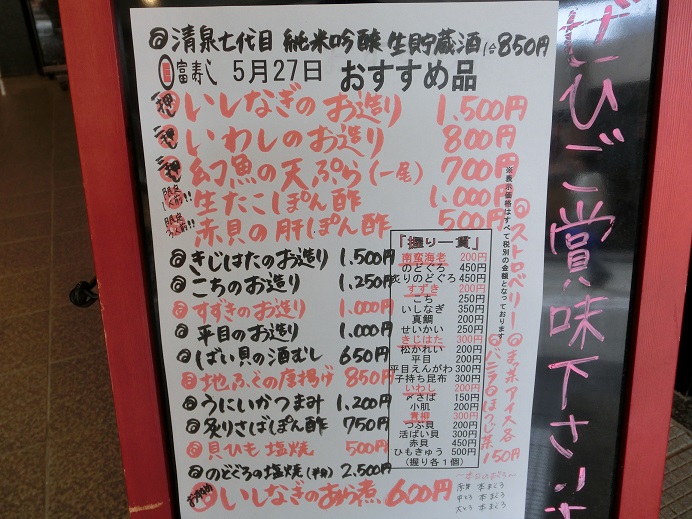 清泉七代目 純米吟醸 生貯蔵酒 1合850円
富寿し 5月27日 おすすめ品
一押し いしなぎのお造り 1,500円
二押し いわしのお造り 800円
三押し 幻魚の天ぷら(一尾) 700円
生たこぽん酢 1,000円
赤貝の肝ぽん酢 500円
きじはたのお造り 1,500円
こちのお造り 1,250円
すずきのお造り 1,000円
平目のお造り 1,000円
ばい貝の酒むし 650円
地ふぐの唐揚げ 850円
うにいかつまみ 1,200円
炙りさばぽん酢 750円
貝ひも塩焼 500円
のどぐろの塩焼(半身) 2,500円
いしなぎのあら煮 600円
「握り一貫」
南蛮海老 200円
のどぐろ 450円
炙りのどぐろ 450円
すずき 200円
こち 250円
いしなぎ 350円
真鯛 200円
せいかい 250円
きじはた 300円
松かれい 200円
平目 200円
平目えんがわ 300円
子持ち昆布 300円
いわし 200円
〆さば 150円
小肌 200円
青柳 300円
つぶ貝 200円
活ばい貝 300円
赤貝 450円
ひもきゅう 500円
(握り各1個)
※表示価格はすべて税別の金額となっております
ストロベリー
バニラ
ほうじ茶
150円
赤身 本まぐろ
中とろ 本まぐろ
大とろ 本まぐろ
ぜひご賞味下さいませ